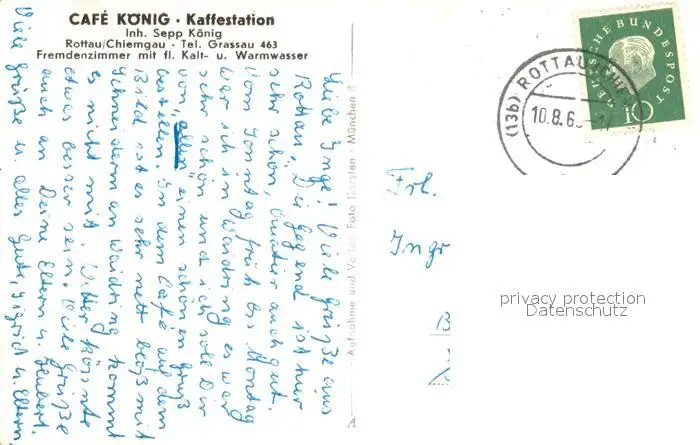 CAFÉ KÖNIG · Kaffestation
Inh. Sepp König
Rottau/Chiemgau · Tel. Grassau 463
Fremdenzimmer mit fl. Kalt- u. Warmwasser
Liebe Inge! Viele Grüße aus
Rottau. Die Gegend ist hier
sehr schön Quatier auch gut.
Vom Sonntag früh bis Montag
war ich in Waidring es war
sehr schön und ich soll Dir
von "allen" einen schönen Gruß
bestellen. In dem Café auf dem
Bild ist es sehr nett bloß mit
Schneidern an Waidring kommt
es nicht mit. Wetter könnte
etwas besser sein. Viele Grüße
auch an Deine Eltern u. Hubert.
Viele Grüße u. alles Gute, Sigrid u. Eltern
Aufnahme und Verlag Foto Horsten · München 8
(13b) ROTTAU
10.8.6
DEUTSCHE BUNDESPOST
10
Frl.
Ingr
B
privacy protection
Datenschutz